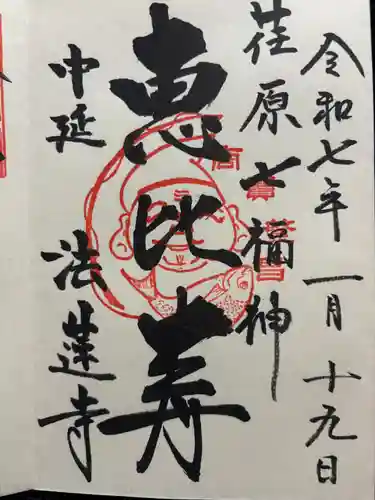 令和七年一月十九日
荏原七福神
恵比寿
中延 法蓮寺